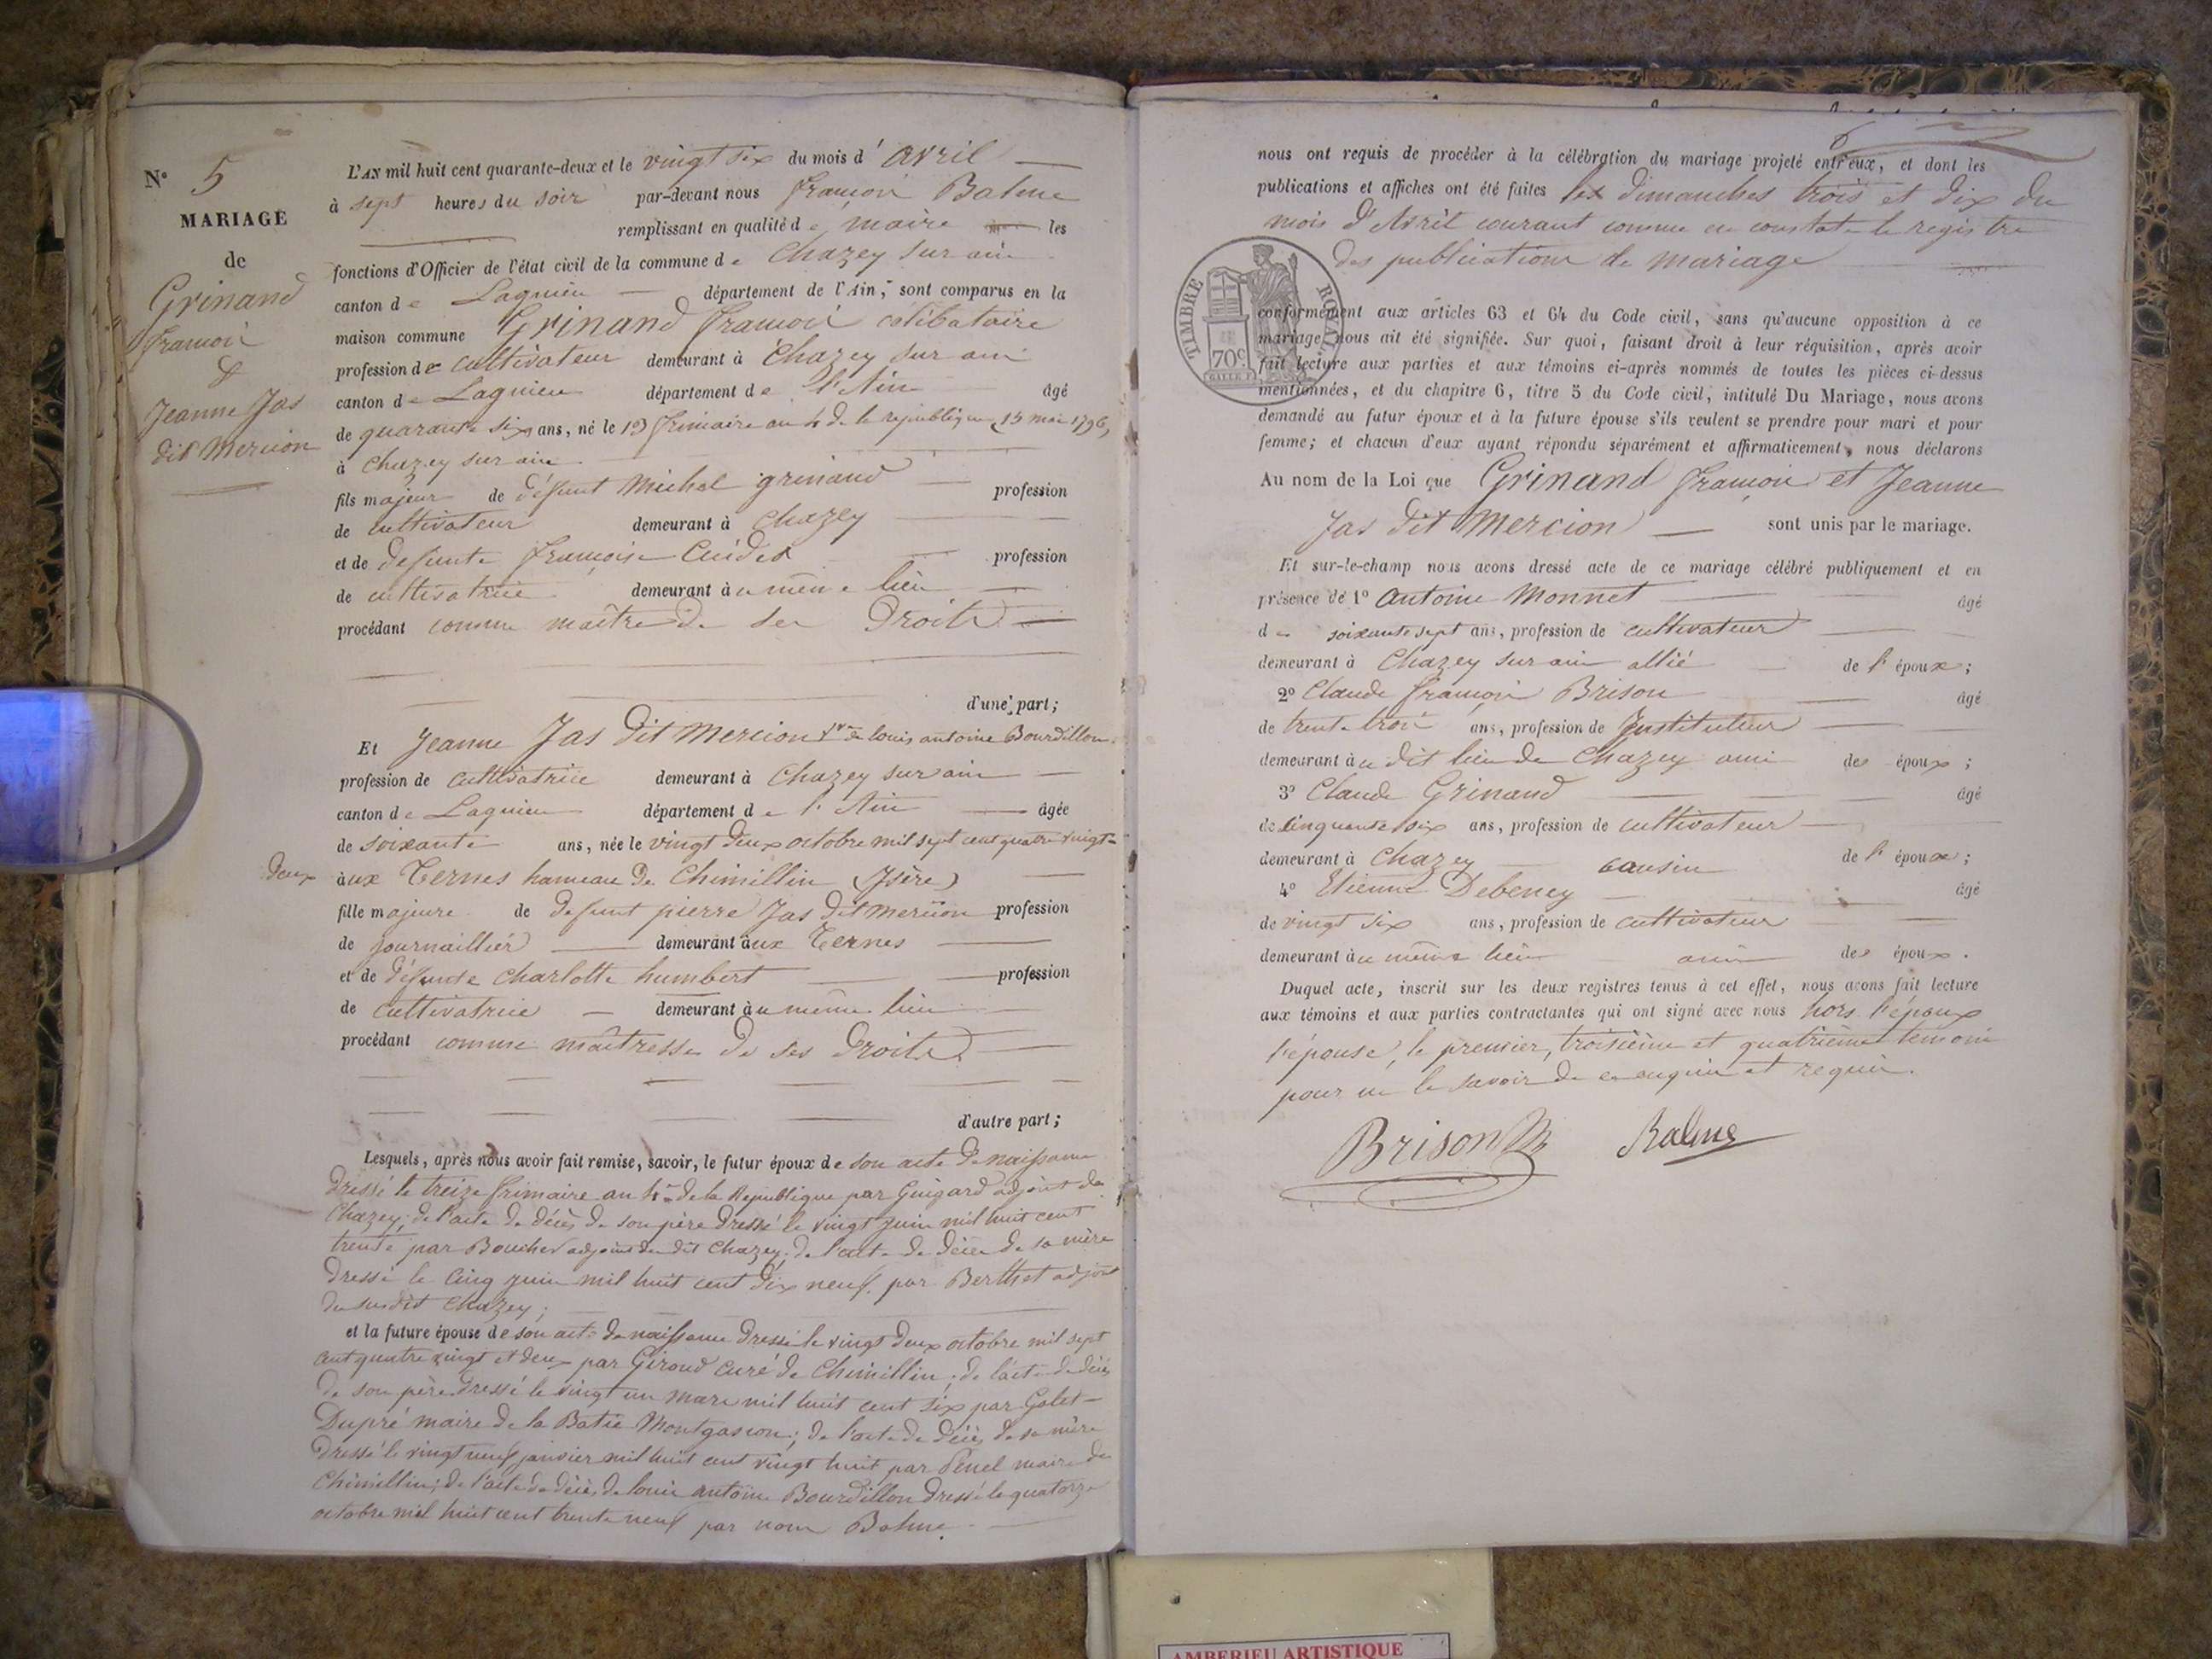 N° 5
MARIAGE
de
Grinand
françois
&
Jeanne Jas
dit Mercion
L'AN mil huit cent quarante-deux et le vingt six du mois d'avril
à sept heures du soir par-devant nous françois Balme
remplissant en qualité de maire les
fonctions d'Officier de l'état civil de la commune de Chazey sur ain
canton de Lagnieu département de l'Ain, sont comparus en la
maison commune Grinand françois célibataire
profession de cultivateur demeurant à Chazey sur ain
canton de Lagnieu département de l'Ain âgé
de quarante six ans, né le 13 frimaire an 4 de la republique (15 mai 1796)
à Chazey sur ain
fils majeur de défunt Michel grinand profession
de cultivateur demeurant à Chazey
et de defunte françoise profession
de cultivatrice demeurant au même lieu
procédant comme maître de ses Droits
d'une part;
Et Jeanne Jas dit Mercion Vve de louis antoine Bourdillon
profession de cultivatrice demeurant à Chazey sur ain
canton de Lagnieu département de l'Ain âgée
de soixante ans, née le vingt deux octobre mil sept cent quatre vingt-
deux aux Ternes hameau de Chimillin (Isère)
fille majeure de defunt pierre Jas dit Mercion profession
de journaillier demeurant aux Ternes
et de défunte Charlotte humbert profession
de cultivatrice demeurant au même lieu
procédant comme maîtresse de ses Droits
d'autre part;
Lesquels, après nous avoir fait remise, savoir, le futur époux de son acte de naissance
dressé le treize frimaire an 4e de la Republique par Guigard adjoint de
Chazey; de l'acte de décès de son père dressé le vingt juin mil huit cent
trente par Boucher adjoint du dit Chazey; de l'acte de décès de sa mère
dressé le cinq juin mil huit cent dix neuf par Berthet adjoint
du susdit Chazey;
et la future épouse de son acte de naissance dressé le vingt deux octobre mil sept
cent quatre vingt et deux par Giroud curé de Chimillin; de l'acte de décès
de son père dressé le vingt un mars mil huit cent six par Galet-
Dupré maire de la Batie Montgascon; de l'acte de décès de sa mère
dressé le vingt neuf janvier mil huit cent vingt huit par Penel maire de
Chimillin; de l'acte de décès de louis antoine Bourdillon dressé le quatorze
octobre mil huit cent trente neuf par nous Balme.
6
nous ont requis de procéder à la célébration du mariage projeté entr'eux, et dont les
publications et affiches ont été faites les dimanches trois et dix du
mois d'Avril courant comme en constate le registre
des publications de mariage
TIMBRE ROYAL
70c.
conformément aux articles 63 et 64 du Code civil, sans qu'aucune opposition à ce
mariage nous ait été signifiée. Sur quoi, faisant droit à leur réquisition, après avoir
fait lecture aux parties et aux témoins ci-après nommés de toutes les pièces ci-dessus
mentionnées, et du chapitre 6, titre 5 du Code civil, intitulé Du Mariage, nous avons
demandé au futur époux et à la future épouse s'ils veulent se prendre pour mari et pour
femme; et chacun d'eux ayant répondu séparément et affirmativement, nous déclarons
Au nom de la Loi que Grinand françois et Jeanne
Jas dit Mercion sont unis par le mariage.
Et sur-le-champ nous avons dressé acte de ce mariage célébré publiquement et en
présence de 1° Antoine Monnet âgé
de soixante sept ans, profession de cultivateur
demeurant à Chazey sur ain allié de l'époux;
2° Claude françois Brison âgé
de trente trois ans, profession de Instituteur
demeurant au dit lieu de Chazey ami des époux;
3° Claude Grinand âgé
de cinquante six ans, profession de cultivateur
demeurant à Chazey cousin de l'époux;
4° Etienne Debeney âgé
de vingt six ans, profession de cultivateur
demeurant au même lieu ami des époux.
Duquel acte, inscrit sur les deux registres tenus à cet effet, nous avons fait lecture
aux témoins et aux parties contractantes qui ont signé avec nous hors l'époux
l'épouse, le premier, troisième et quatrième témoins
pour ne le savoir de ce enquis et requis.
Brison Balme
AMBERIEU ARTISTIQUE